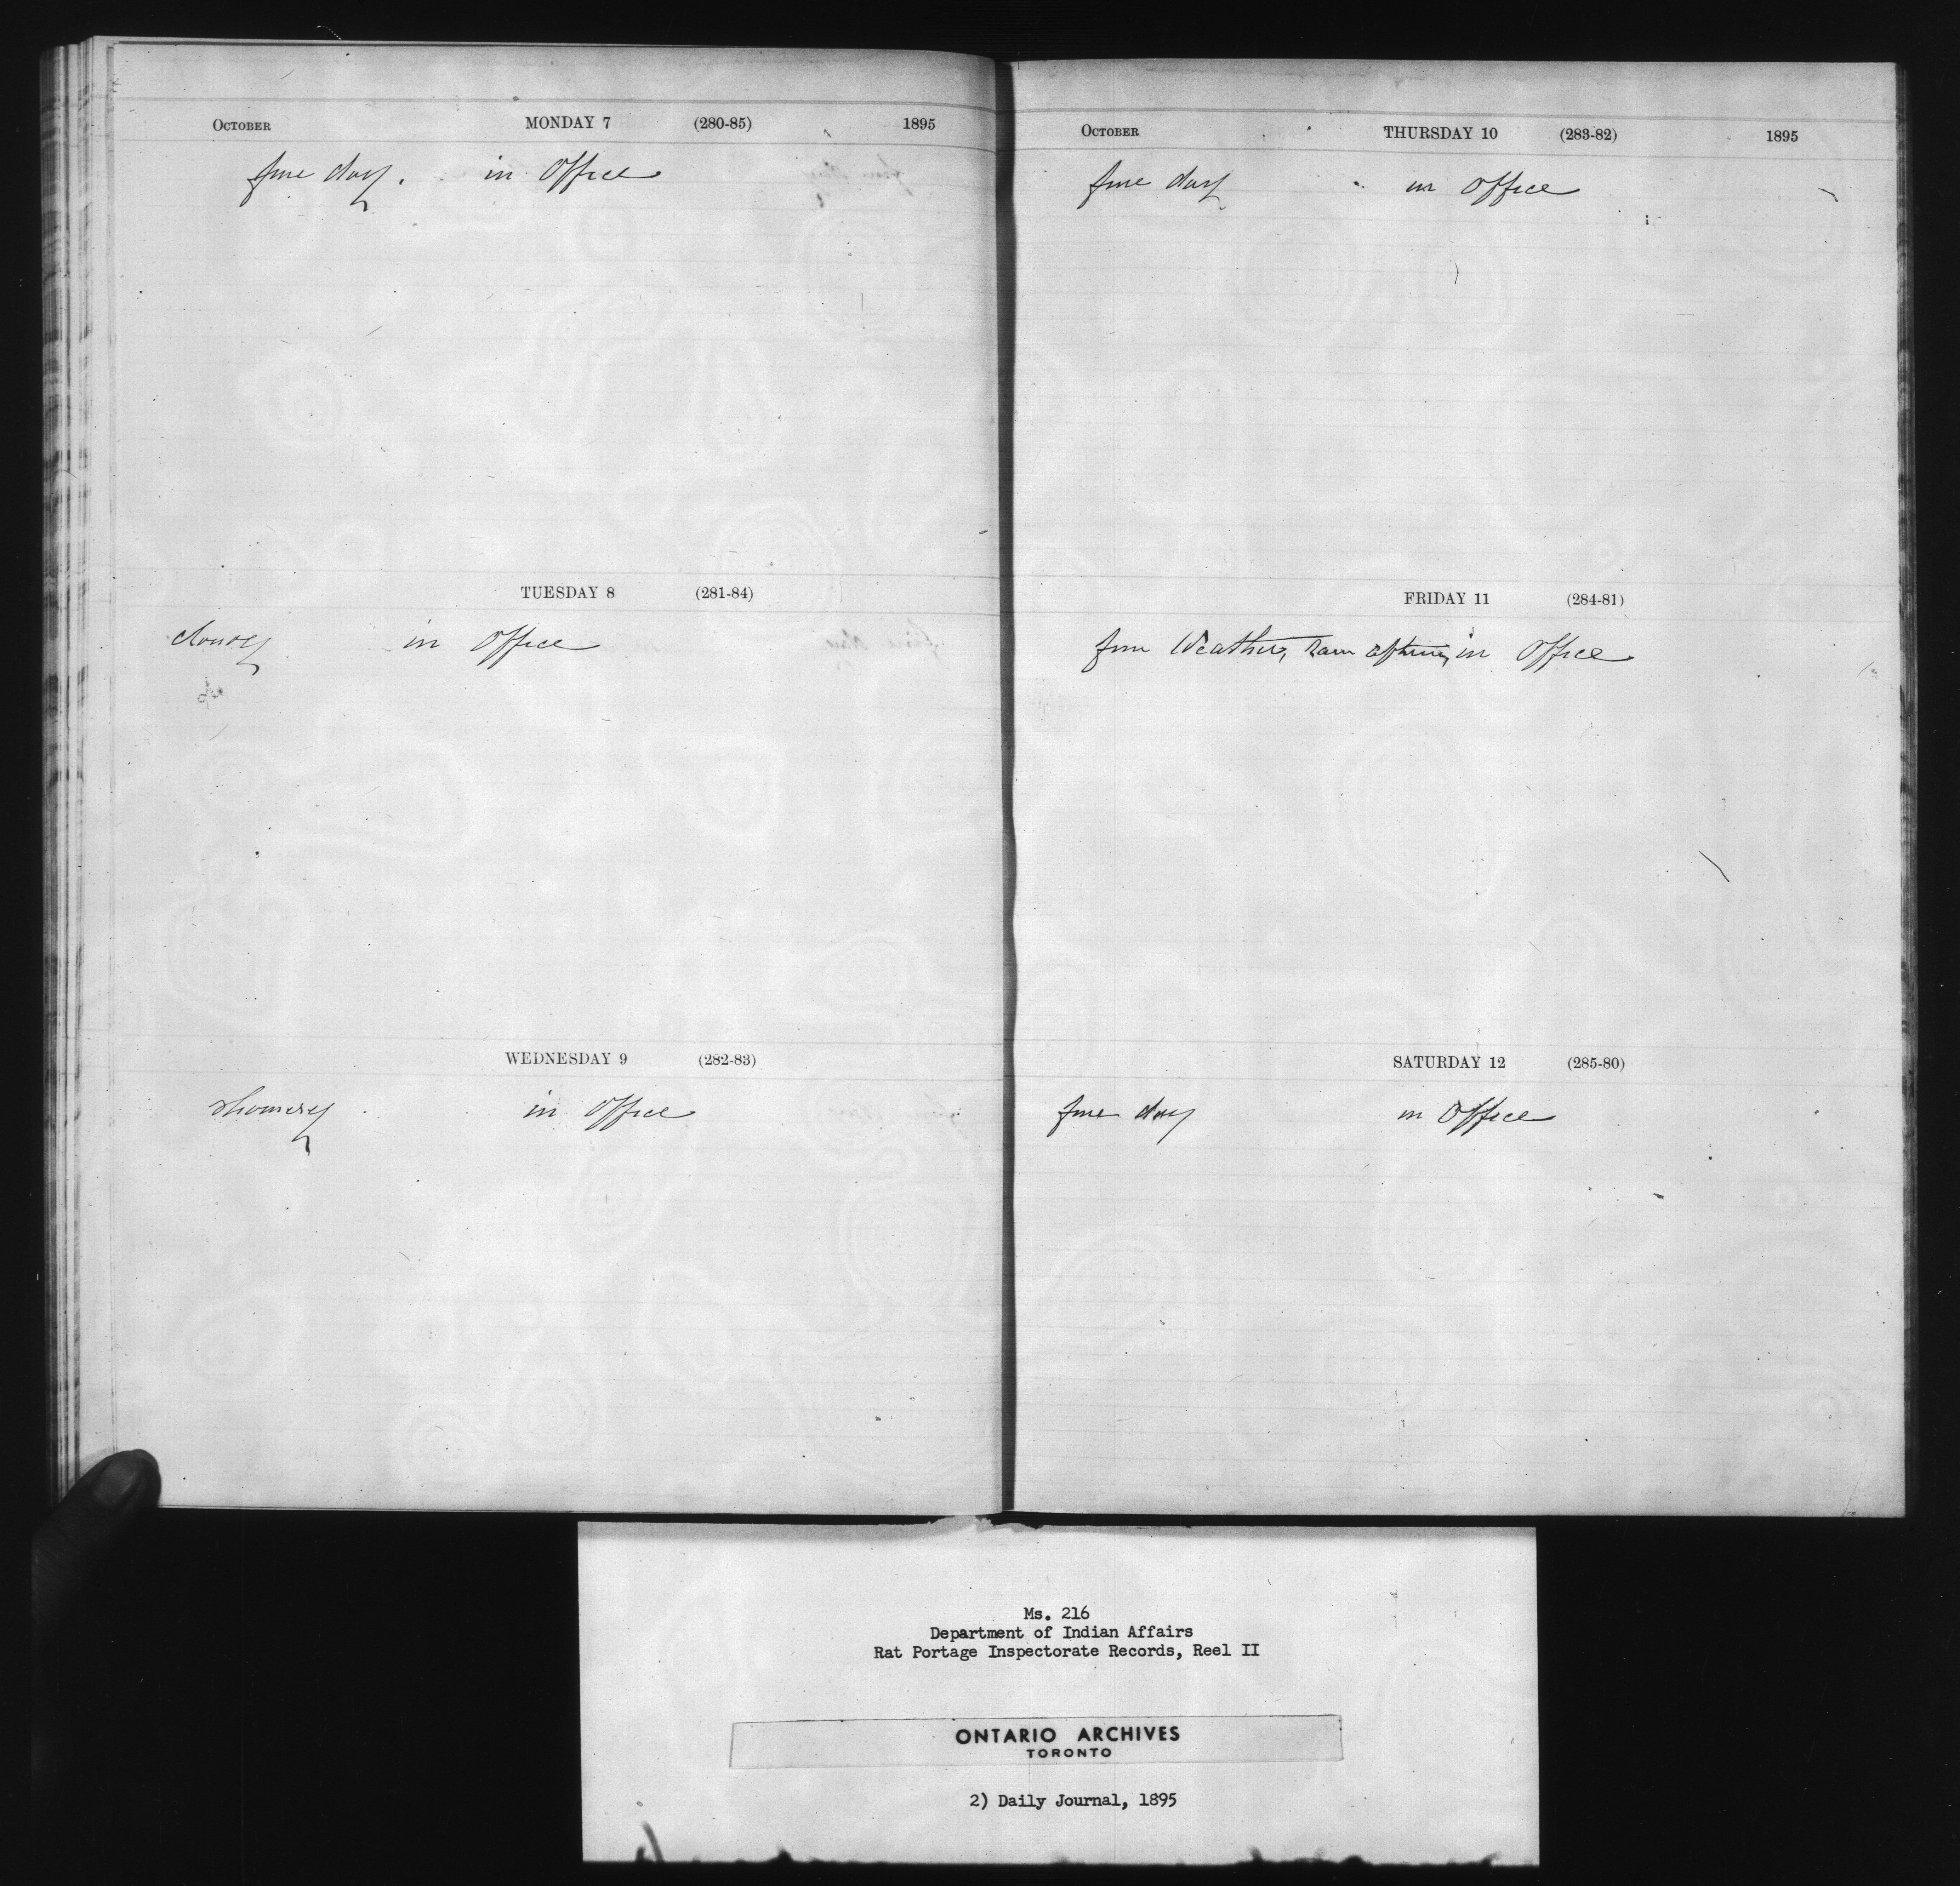 October MONDAY 7 (280-85) 1895
fine day. in Office
TUESDAY 8 (281-84)
cloudy in Office
WEDNESDAY 9 (282-83)
showery in Office
October THURSDAY 10 (283-82) 1895
fine day in Office
FRIDAY 11 (284-81)
fine Weather, Rain in Office
SATURDAY 12 (285-80)
fine day in Office
Ms. 216
Department of Indian Affairs
Rat Portage Inspectorate Records, Reel II
ONTARIO ARCHIVES
TORONTO
2) Daily Journal, 1895